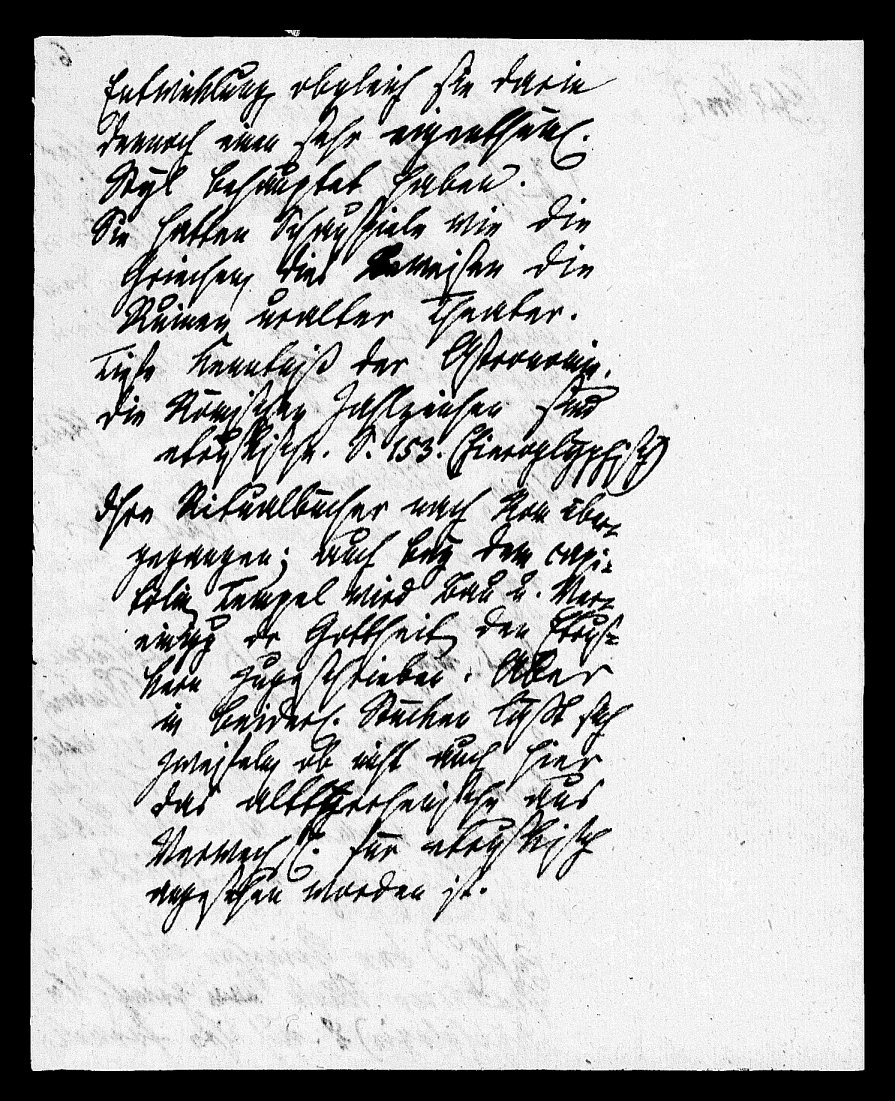 Entwicklung obgleich sie darin
dennoch einen sehr eigenthüml.
Styl behauptet haben.
Sie hatten Schauspiele wie die
Griechen, dies beweisen die
Ruinen uralter Theater.
Tiefe Kenntniß der Astronomie.
Die Römischen Zahlzeichen sind
etruskische. S. 153. (hieroglyphisch)
Ihre Ritualbücher nach Rom über-
gegangen; auch bey dem capi-
tolin Tempel wird Bau u. Ver-
der Gottheiten den Etrus-
kern zugeschrieben. Aber
in beiderl. Stücken läßt sich
zweifeln ob nicht auch hier
das altgriechische aus
Verwechsl. für etruskisch
angesehen worden ist.